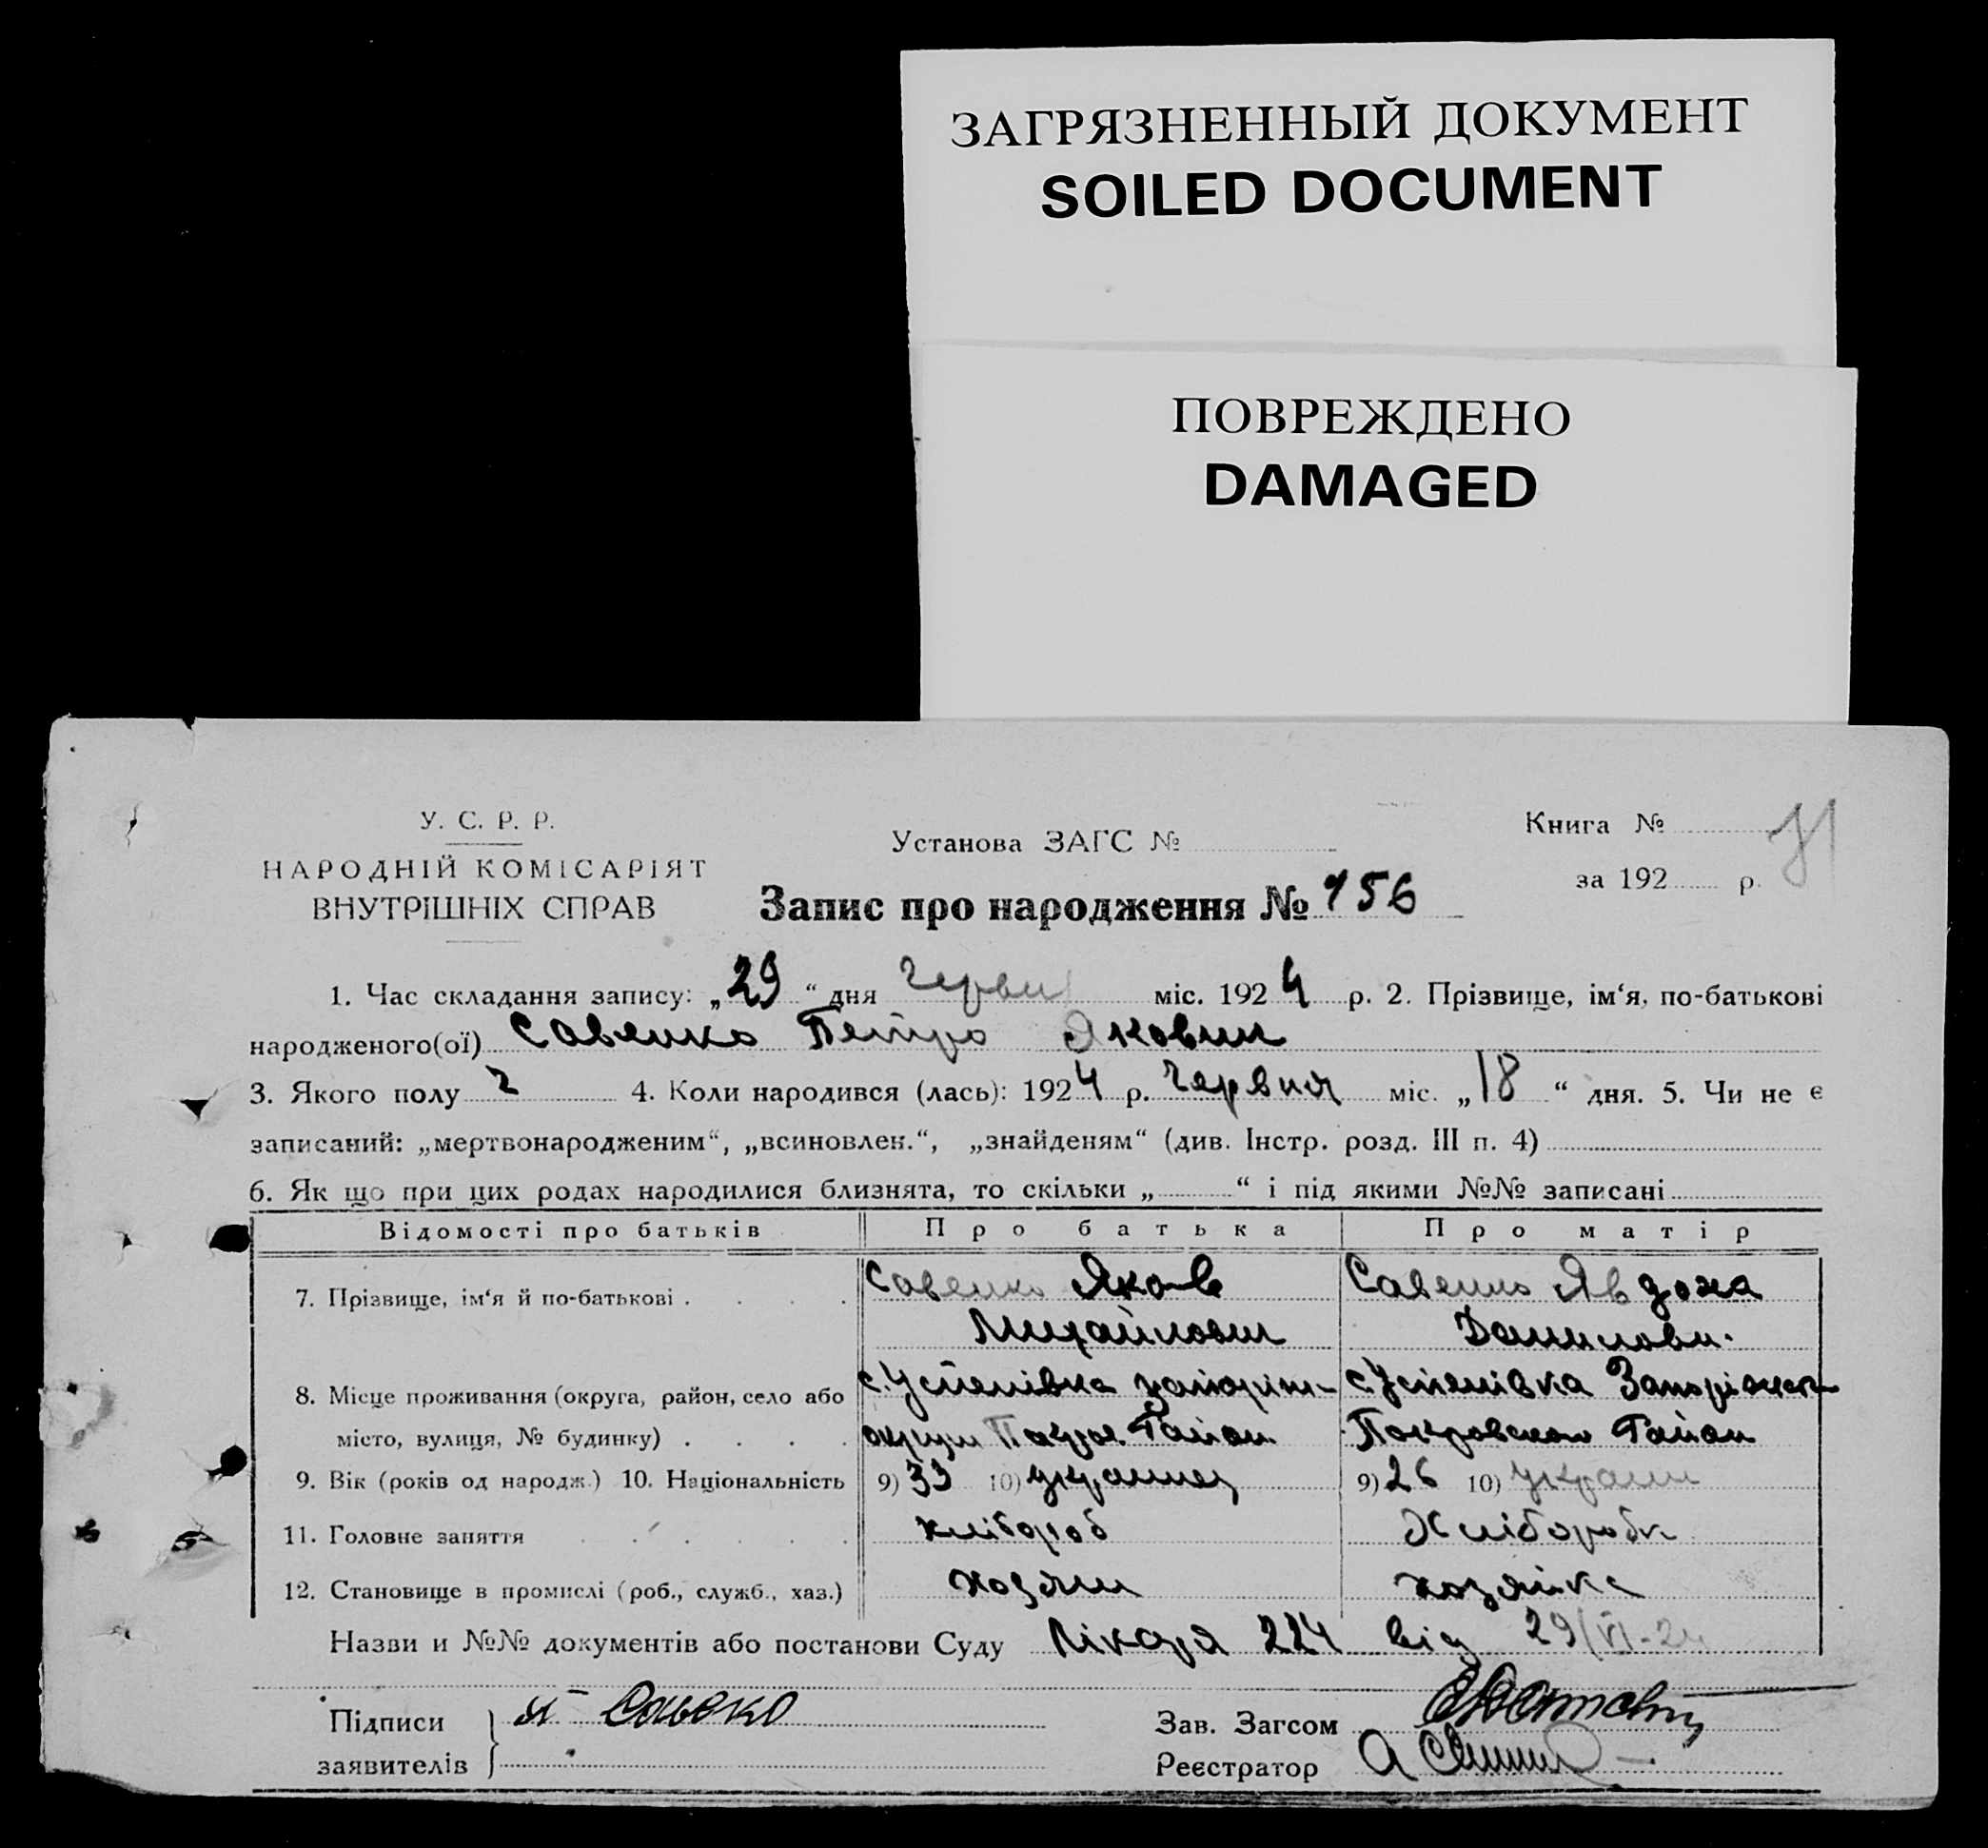 ЗАГРЯЗНЕННЫЙ ДОКУМЕНТ
SOILED DOCUMENT
ПОВРЕЖДЕНО
DAMAGED
У. С. Р. Р.
НАРОДНІЙ КОМІСАРІЯТ
ВНУТРІШНІХ СПРАВ
Установа ЗАГС №
Книга №
за 192 р.
Запис про народження № 156
1. Час складання запису: „29“ дня червн міс. 1924 р. 2. Прізвище, ім‘я, по-батькові
народженого(ої) Савенко Петро Якович
3. Якого полу ч 4. Коли народився (лась): 1924 р. червня міс. „18“ дня. 5. Чи не є
записаний: „мертвонародженим“, „всиновлен.“, „знайденям“ (див. Інстр. розд. III п. 4)
6. Як що при цих родах народилися близнята, то скільки „ “ і під якими №№ записані
Відомості про батьків Про батька Про матір
7. Прізвище, ім‘я й по-батькові . . . . Савенко Яков Савенко Явдоха
Михайлович Данилови.
8. Місце проживання (округа, район, село або с. Успенівка запоріж- с. Успенівка Запоріжск
місто, вулиця, № будинку) . . . . округи Покров. Район Покровськ Район
9. Вік (років од народж.) 10. Національність 9) 33 10) украинец 9) 26 10) украин
11. Головне заняття . . . . . хлібороб Хліборобк
12. Становище в промислі (роб., служб., хаз.) хозяин хозяйка
Назви и №№ документів або постанови Суду Лікаря 224 від 29/VI-24
Підписи Я Савеко Зав. Загсом
заявителів Реєстратор А